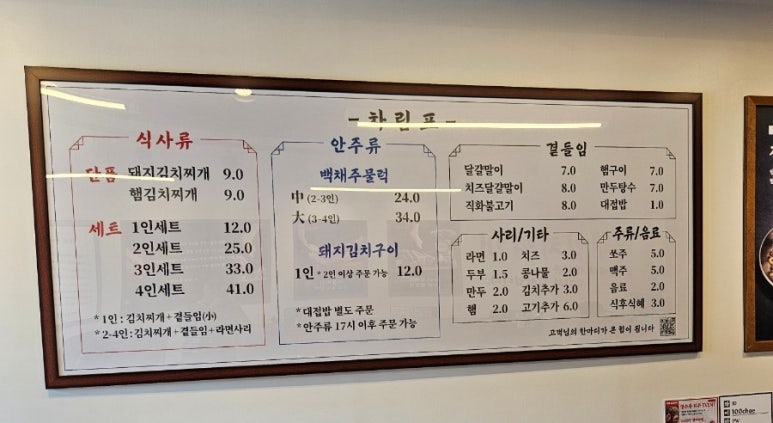 - 차림표 -
식사류
단품 돼지김치찌개 9.0
햄김치찌개 9.0
세트 1인세트 12.0
2인세트 25.0
3인세트 33.0
4인세트 41.0
* 1인 : 김치찌개 + 곁들임(小)
* 2-4인 : 김치찌개 + 곁들임 + 라면사리
안주류
백채주물럭
中 (2-3인) 24.0
大 (3-4인) 34.0
돼지김치구이
1인 * 2인 이상 주문 가능 12.0
* 대접밥 별도 주문
* 안주류 17시 이후 주문 가능
곁들임
달걀말이 7.0 햄구이 7.0
치즈달걀말이 8.0 만두탕수 7.0
직화불고기 8.0 대접밥 1.0
사리/기타
라면 1.0 치즈 3.0
두부 1.5 콩나물 2.0
만두 2.0 김치추가 3.0
햄 2.0 고기추가 6.0
주류/음료
쏘주 5.0
맥주 5.0
음료 2.0
식후식혜 3.0
고객님의 한마디가 큰 힘이 됩니다